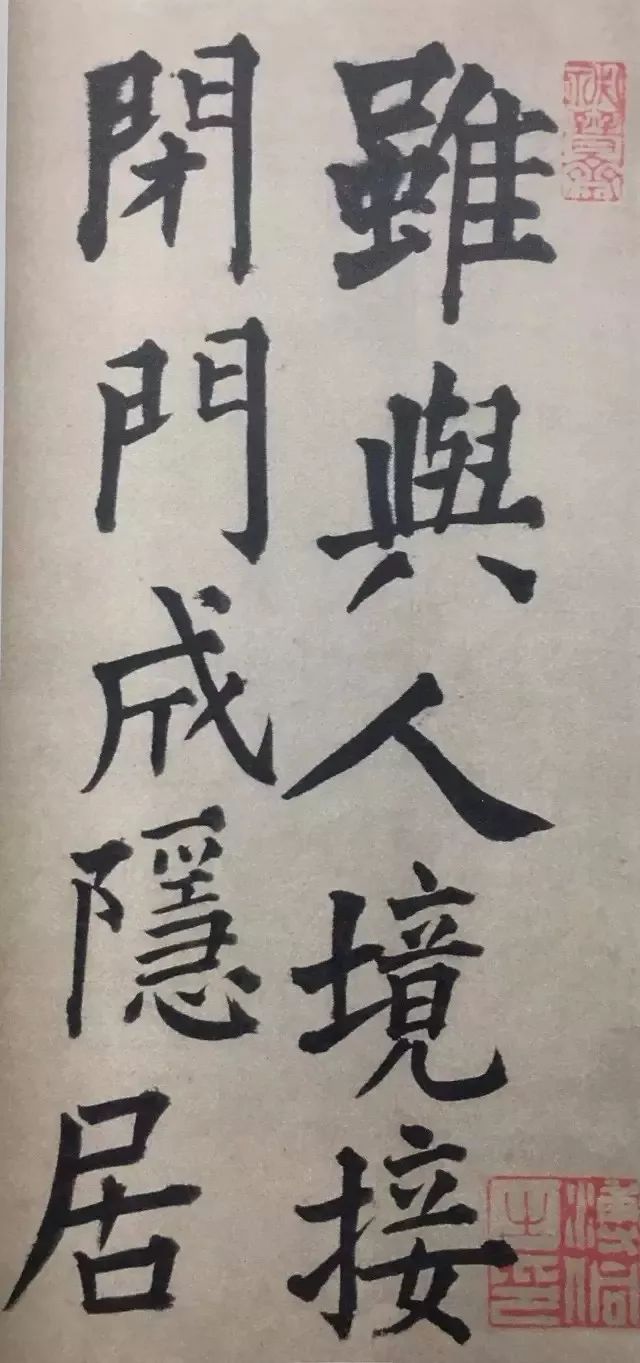 雖與人境接
閉門成隱居